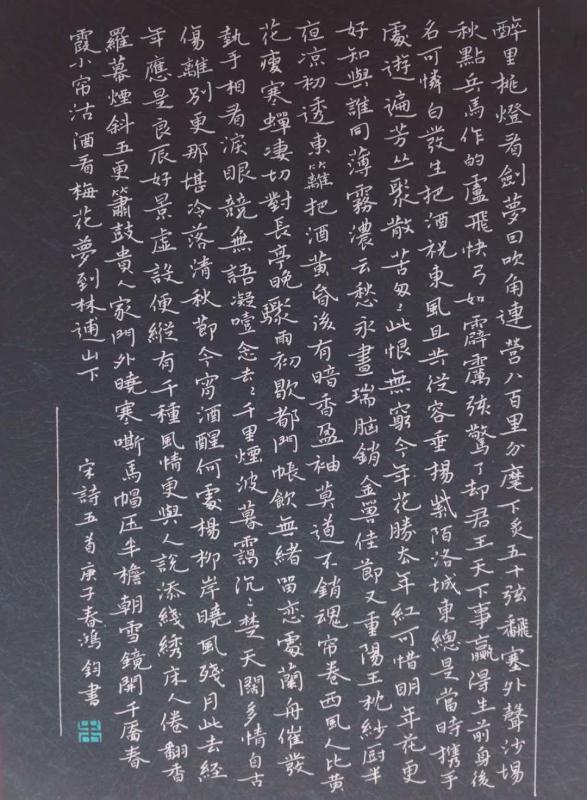 醉里挑燈看劍夢回吹角連營八百里分麾下炙五十弦翻塞外聲沙場
秋點兵馬作的盧飛快弓如霹靂弦驚了却君王天下事贏得生前身後
名可憐白發生把酒祝東風且共從容垂楊紫陌洛城東總是當時携手
處遊遍芳丛聚散苦匆々此恨無窮今年花勝去年紅可惜明年花更
好知與誰同薄霧濃云愁永晝瑞脑銷金獸佳節又重陽玉枕紗厨半
夜凉初透東籬把酒黄昏後有暗香盈袖莫道不銷魂帘卷西風人比黄
花瘦寒蟬凄切對長亭晚驟雨初歇都門帳飲無緒留恋處蘭舟催發
執手相看淚眼競無語凝噎念去々千里煙波暮靄沉々楚天闊多情自古
傷離別更那堪冷落清秋節今宵酒醒何處楊柳岸曉風殘月此去經
年應是良辰好景虛設便縱有千種風情更與人說添綫綉床人倦翻香
羅幕煙斜五更簫鼓貴人家門外曉寒嘶馬帽压半檐朝雪鏡開千靨春
霞小帘沽酒看梅花夢到林逋山下
宋詩五首庚子春鴻鈞書